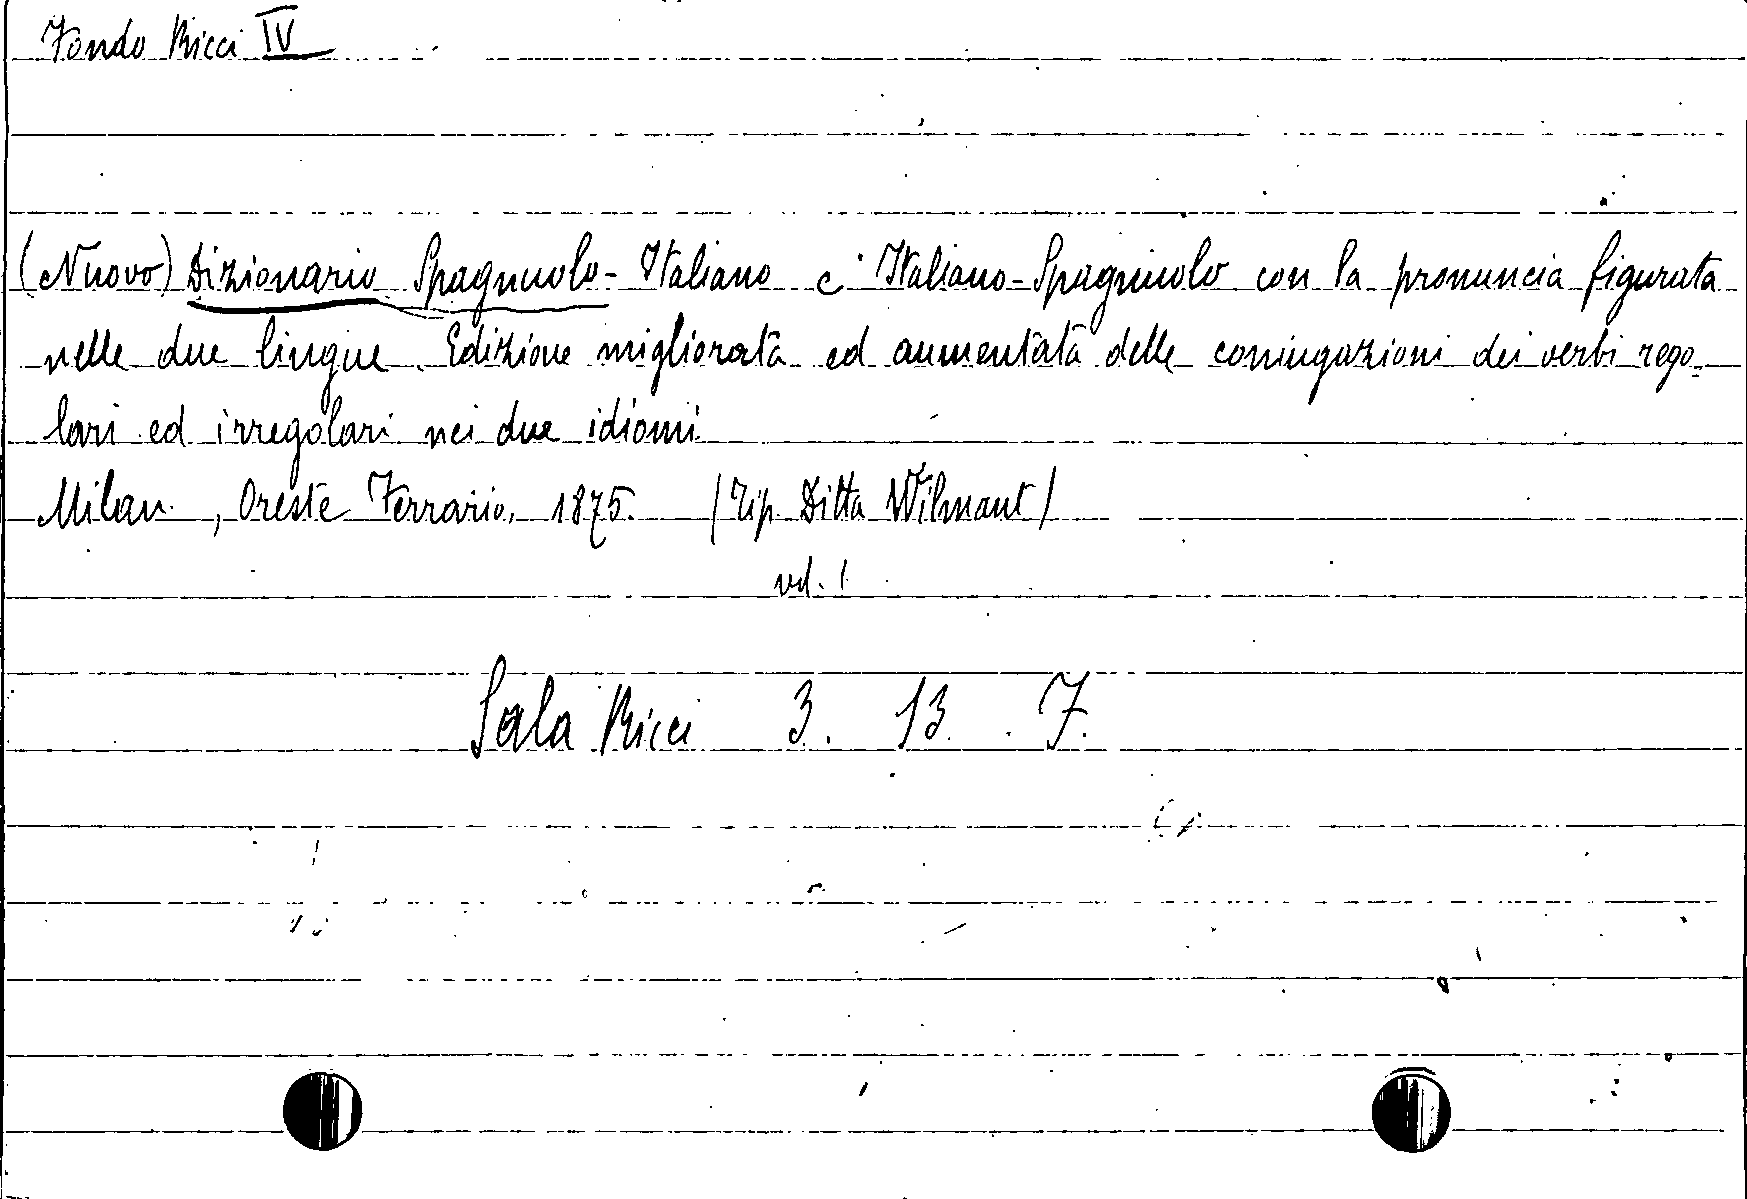 Fondo Ricci IV
(Nuovo) Dizionario Spagnuolo-Italiano e Italiano-Spagnuolo con la pronuncia figurata
nelle due lingue. Edizione migliorata ed aumentata delle coniugazioni dei verbi rego-
lari ed irregolari nei due idiomi
Milan. , Oreste Ferrario, 1875. (Tip. Ditta Wilmant)
vol. 1
Sala Ricci 3. 13. 7.